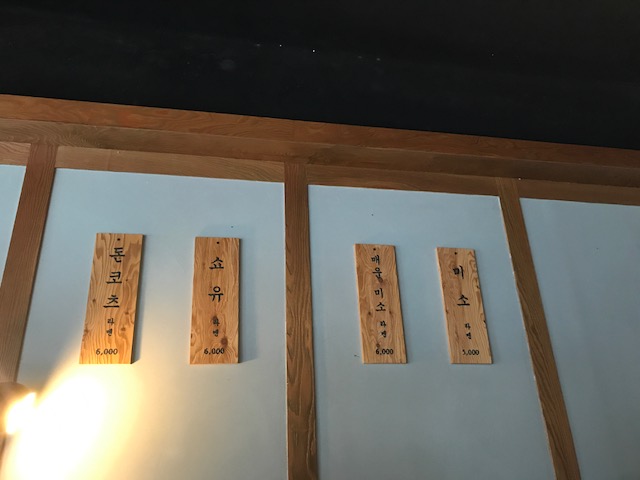 돈코츠 라멘
6,000
쇼유 라멘
6,000
매운미소 라멘
6,000
미소 라멘
5,000